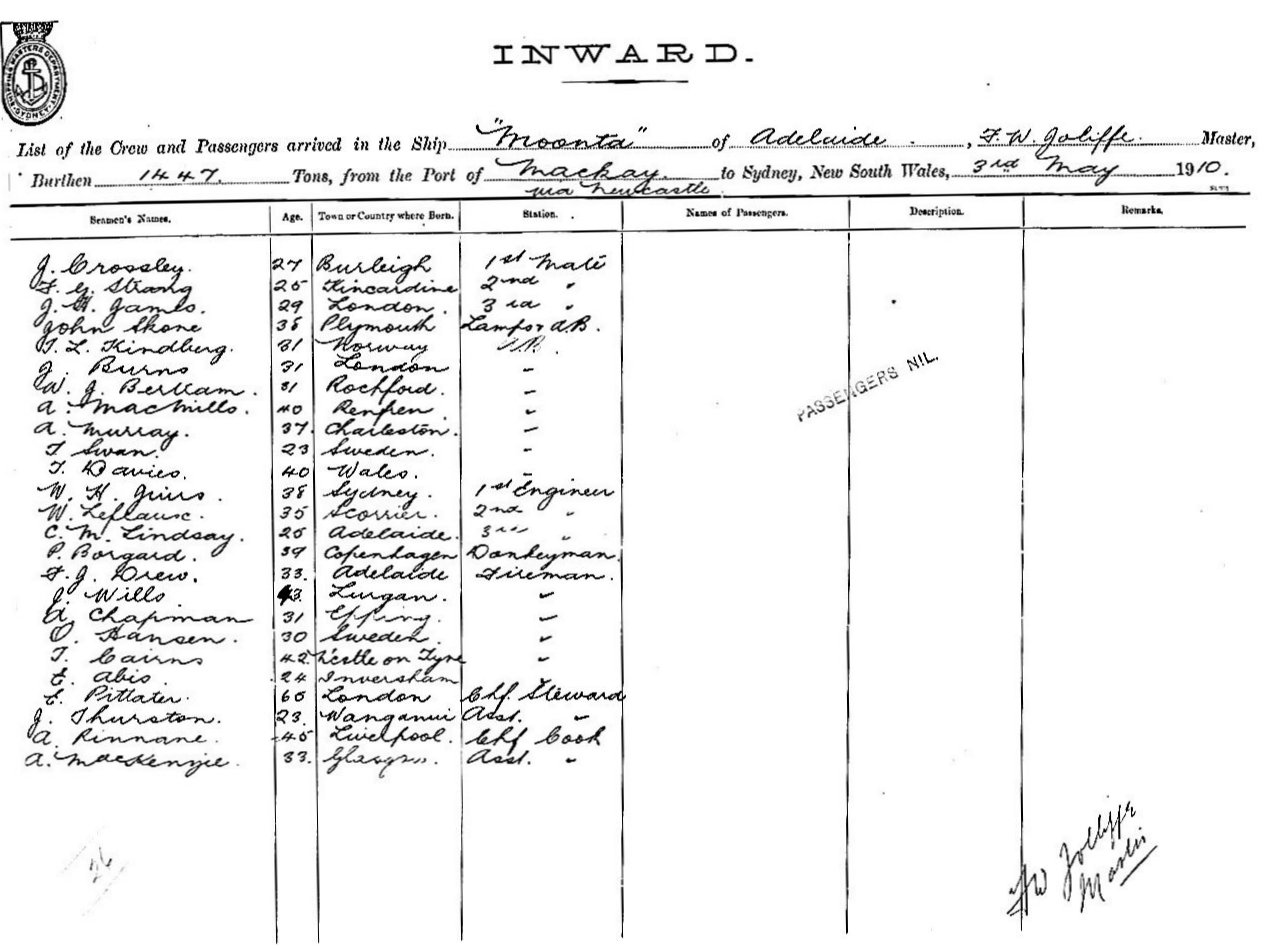 SHIPPING MASTERS DEPARTMENT SYDNEY
INWARD.
List of the Crew and Passengers arrived in the Ship "Moonta" of Adelaide, F. W. Joliffe. Master,
Burthen 1447. Tons, from the Port of Mackay. to Sydney, New South Wales, 3rd May 1910.
via Newcastle
Seamen's Names. Age. Town or Country where Born. Station. Names of Passengers. Description. Remarks.
J. Crossley. 27 Burleigh 1st Mate
F. G. Strang 25 Kincardine 2nd "
J. H. James. 29 London. 3rd "
John Skone 38 Plymouth Lamps & A.B.
T. L. Kindberg. 31 Norway A.B.
J. Burns 31 London "
W. J. Bertram. 31 Rochford. "
A. MacMills. 40 "
A. Murray. 37. Charleston. "
T Swan. 23 Sweden. "
T. Davies. 40 Wales. "
W. H. 38 Sydney. 1st Engineer
W. 35 Scorrier. 2nd "
C. M. Lindsay. 25 Adelaide. 3rd "
P. Borgard. 39 Copenhagen Donkeyman.
F. J. Drew. 33. Adelaide Fireman.
J. Wills 43. Lurgan. "
A. Chapman 31 Epping. "
O. Hansen. 30 Sweden. "
T. Cairns 42. N'castle on Tyne "
E. Abis 24 Inversham
E. Pittater. 65 London Chf. Steward
J. Thurston. 23. Wanganui Asst. "
A. Rinnane. 45 Liverpool. Chf Cook
A. MacKenzie. 33. Glasgow. Asst. "
PASSENGERS NIL.
26
FW Jolliffe
Master